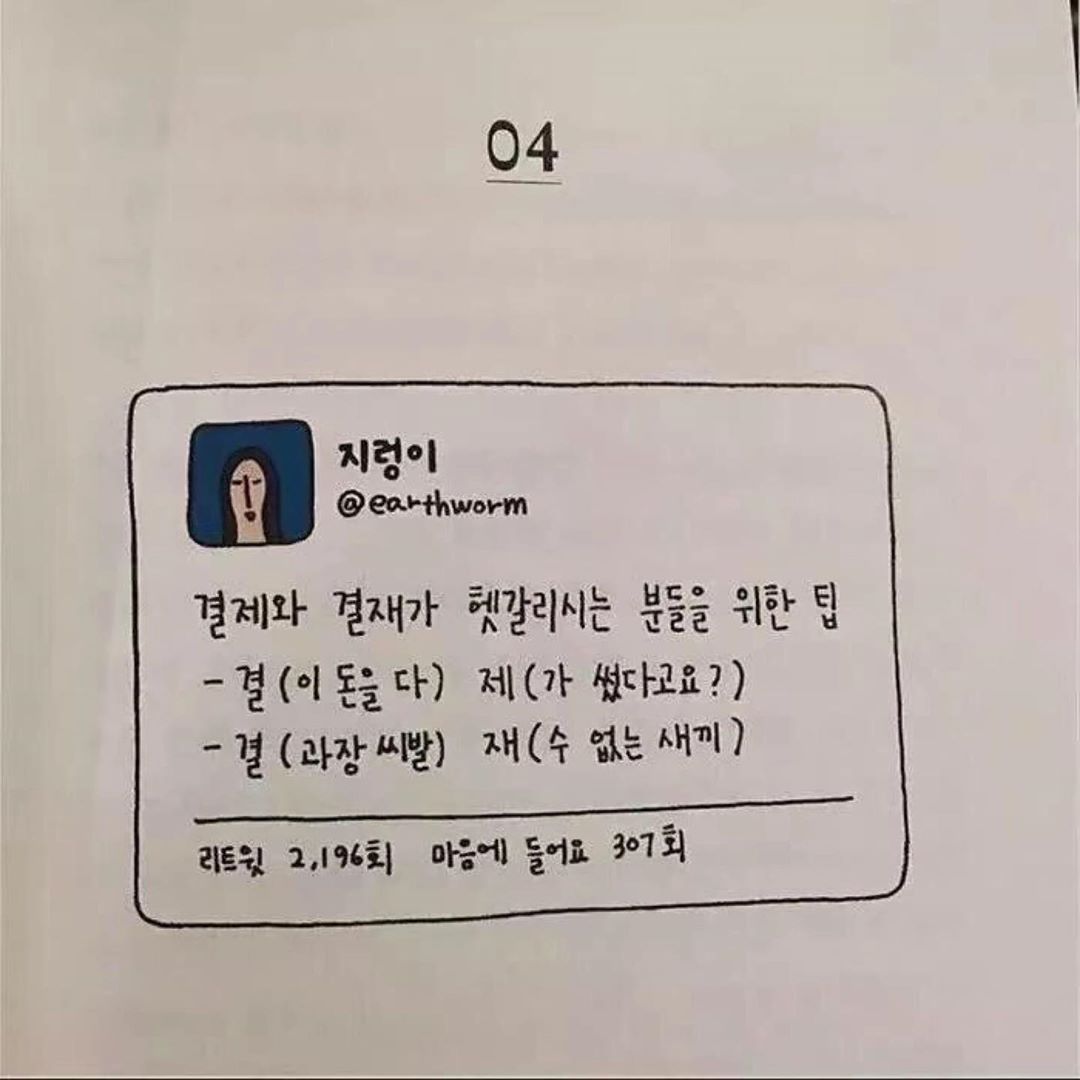 04
지렁이
@earthworm
결제와 결재가 헷갈리시는 분들을 위한 팁
- 결 (이 돈을 다) 제 (가 썼다고요?)
- 결 (과장 씨발) 재 (수 없는 새끼)
리트윗 2,196회 마음에 들어요 307회